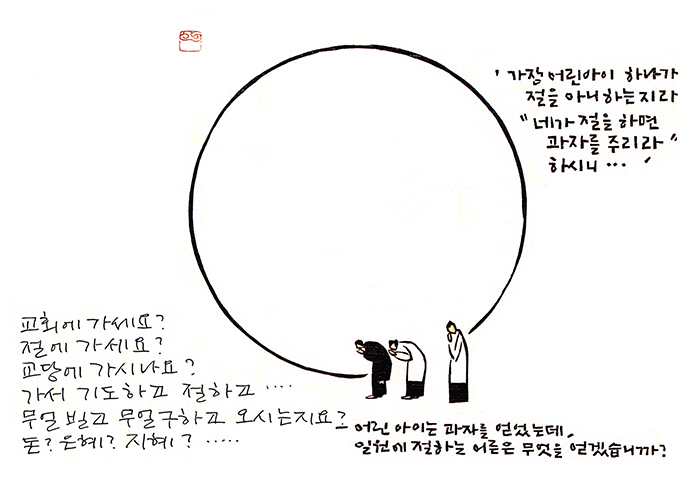 '가장 어린아이 하나가
절을 아니하는지라
"네가 절을 하면
과자를 주리라"
하시니 ··· '
교회에 가세요?
절에 가세요?
교당에 가시나요?
가서 기도하고 절하고 ····
무얼 빌고 무얼구하고 오시는지요?
돈? 은혜? 지혜? ·····
어린 아이는 과자를 얻었는데,
일원에 절하는 어른은 무엇을 얻겠습니까?